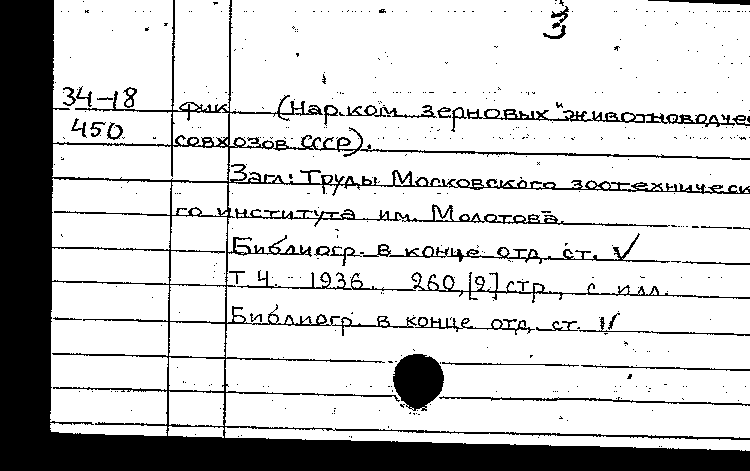 3
34-18 фик (Нар.ком зерновых животноводчес
450 совхозов СССР).
Загл: Труды Московского зоотехническ
го института им. Молотова.
Библиогр. в конце отд. ст. √
Т 4. 1936. 260,[2] стр., с илл.
Библиогр. в конце отд. ст. √